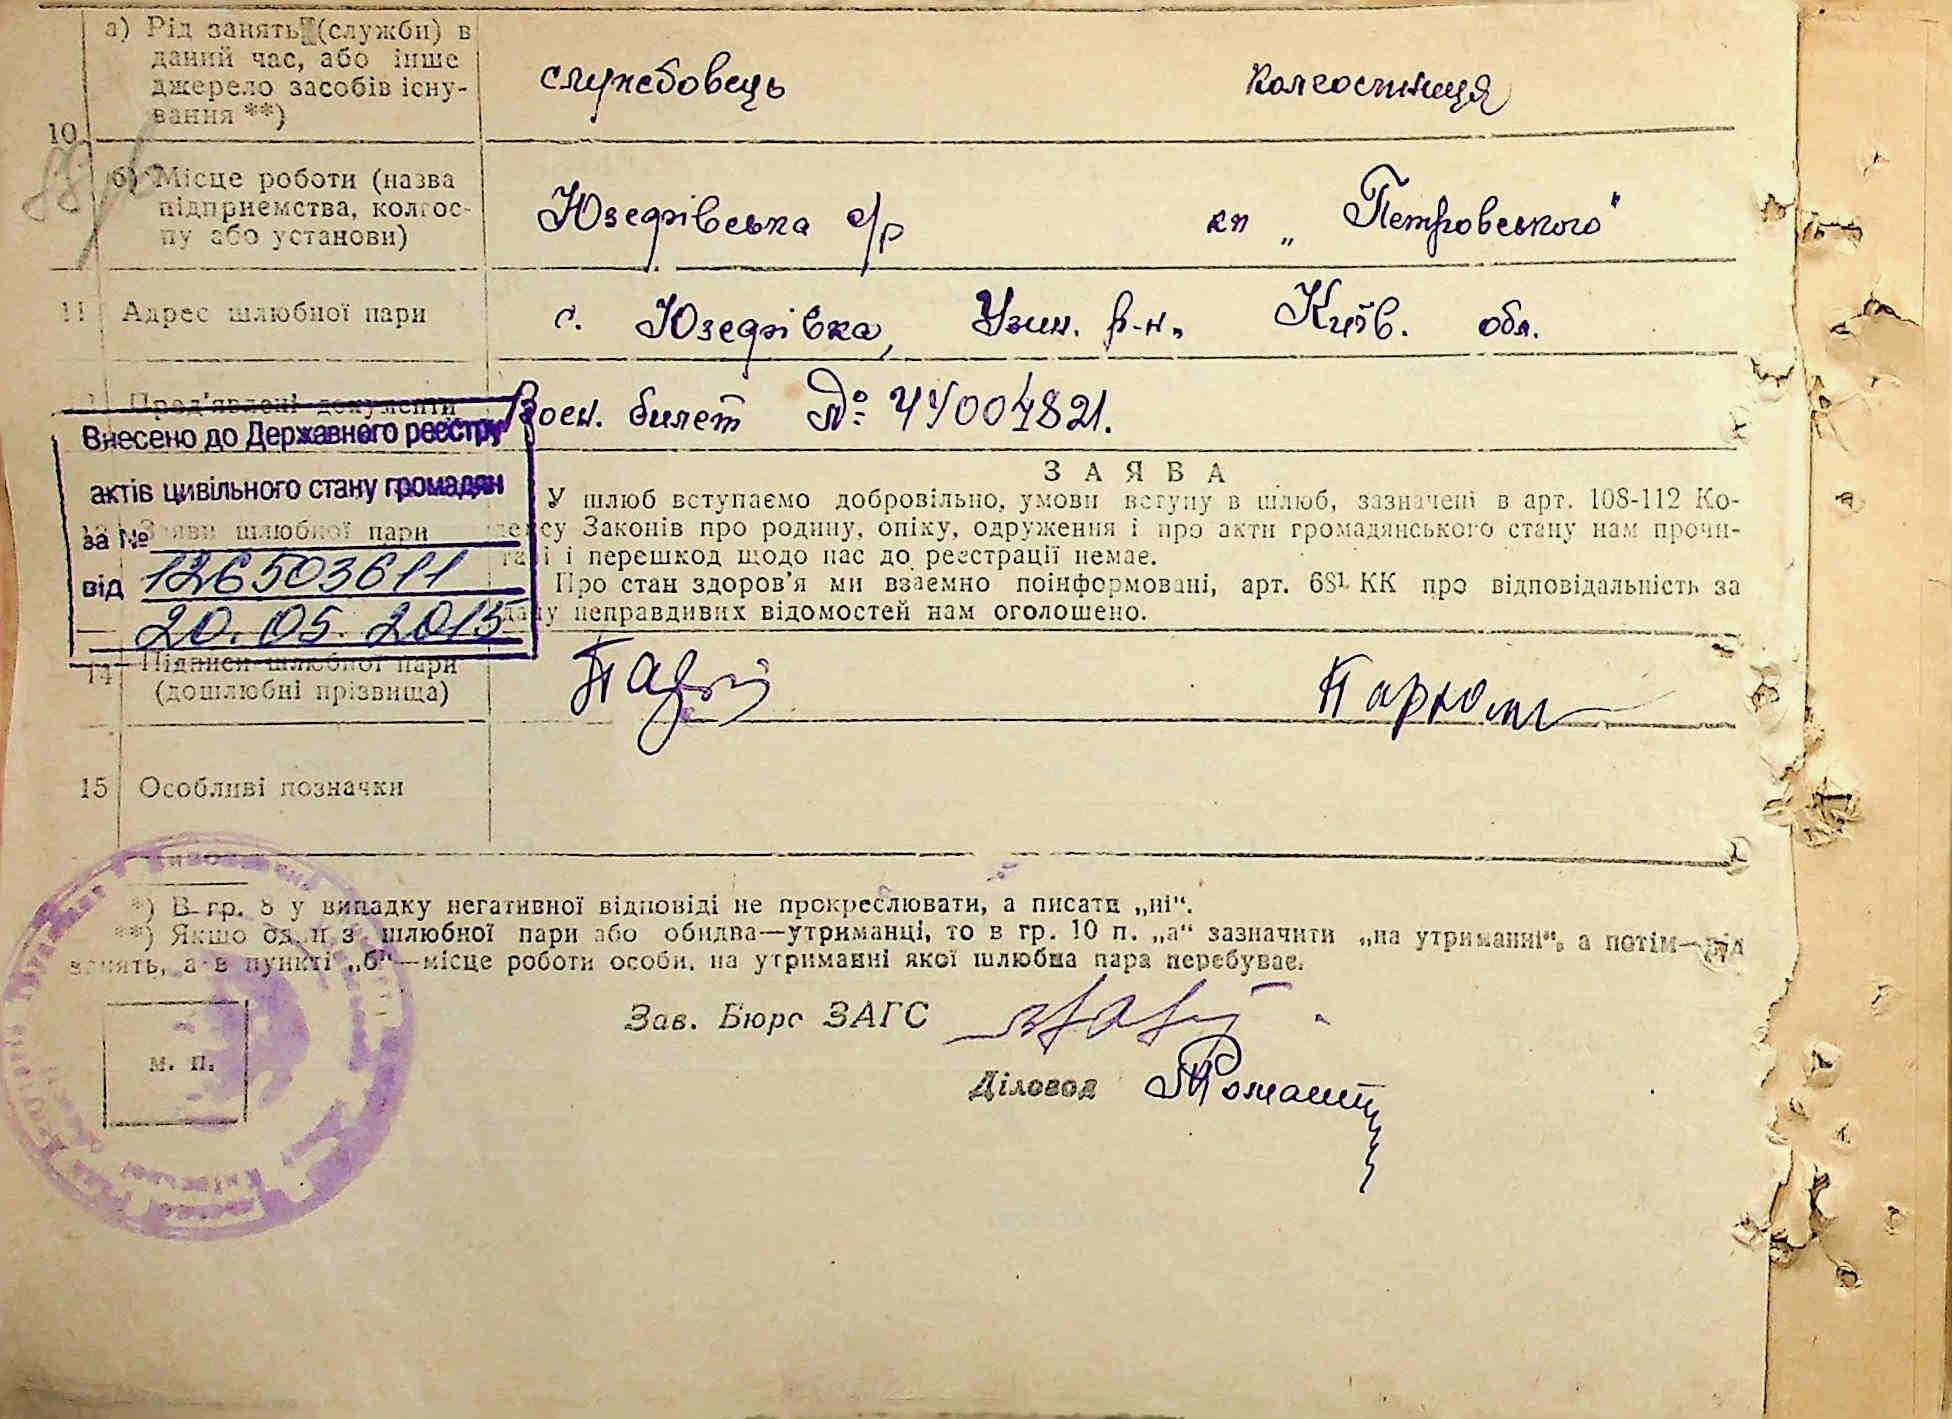 а) Рід занять (служби) в
даний час, або інше
джерело засобів існу-
вання **)
службовець колгоспниця
10
б) Місце роботи (назва
підприємства, колгос-
пу або установи)
Юзефівська с/р кп „Петровського"
11 Адрес шлюбної пари
с. Юзефівка, Узин. р-н. Київ. обл.
Пред'явлені документи
Воен. билет №: ЧУ004821.
Внесено до Державного реєстру
актів цивільного стану громадян
Заяви шлюбної пари
за №
126503611
від
20.05.2015
ЗАЯВА
У шлюб вступаємо добровільно, умови вступу в шлюб, зазначені в арт. 108-112 Ко-
дексу Законів про родину, опіку, одруження і про акти громадянського стану нам прочи-
тані і перешкод щодо нас до реєстрації немає.
Про стан здоров'я ми взаємно поінформовані, арт. 68¹ КК про відповідальність за
дачу неправдивих відомостей нам оголошено.
14 Підписи шлюбної пари
(дошлюбні прізвища)
15 Особливі позначки
*) В гр. 8 у випадку негативної відповіді не прокреслювати, а писати „ні".
**) Якщо один з шлюбної пари або обидва—утриманці, то в гр. 10 п. „а" зазначити „на утриманні", а потім—рід
занять, а в пункті „б"—місце роботи особи, на утриманні якої шлюбна пара перебуває.
Зав. Бюро ЗАГС
Діловод
м. п.